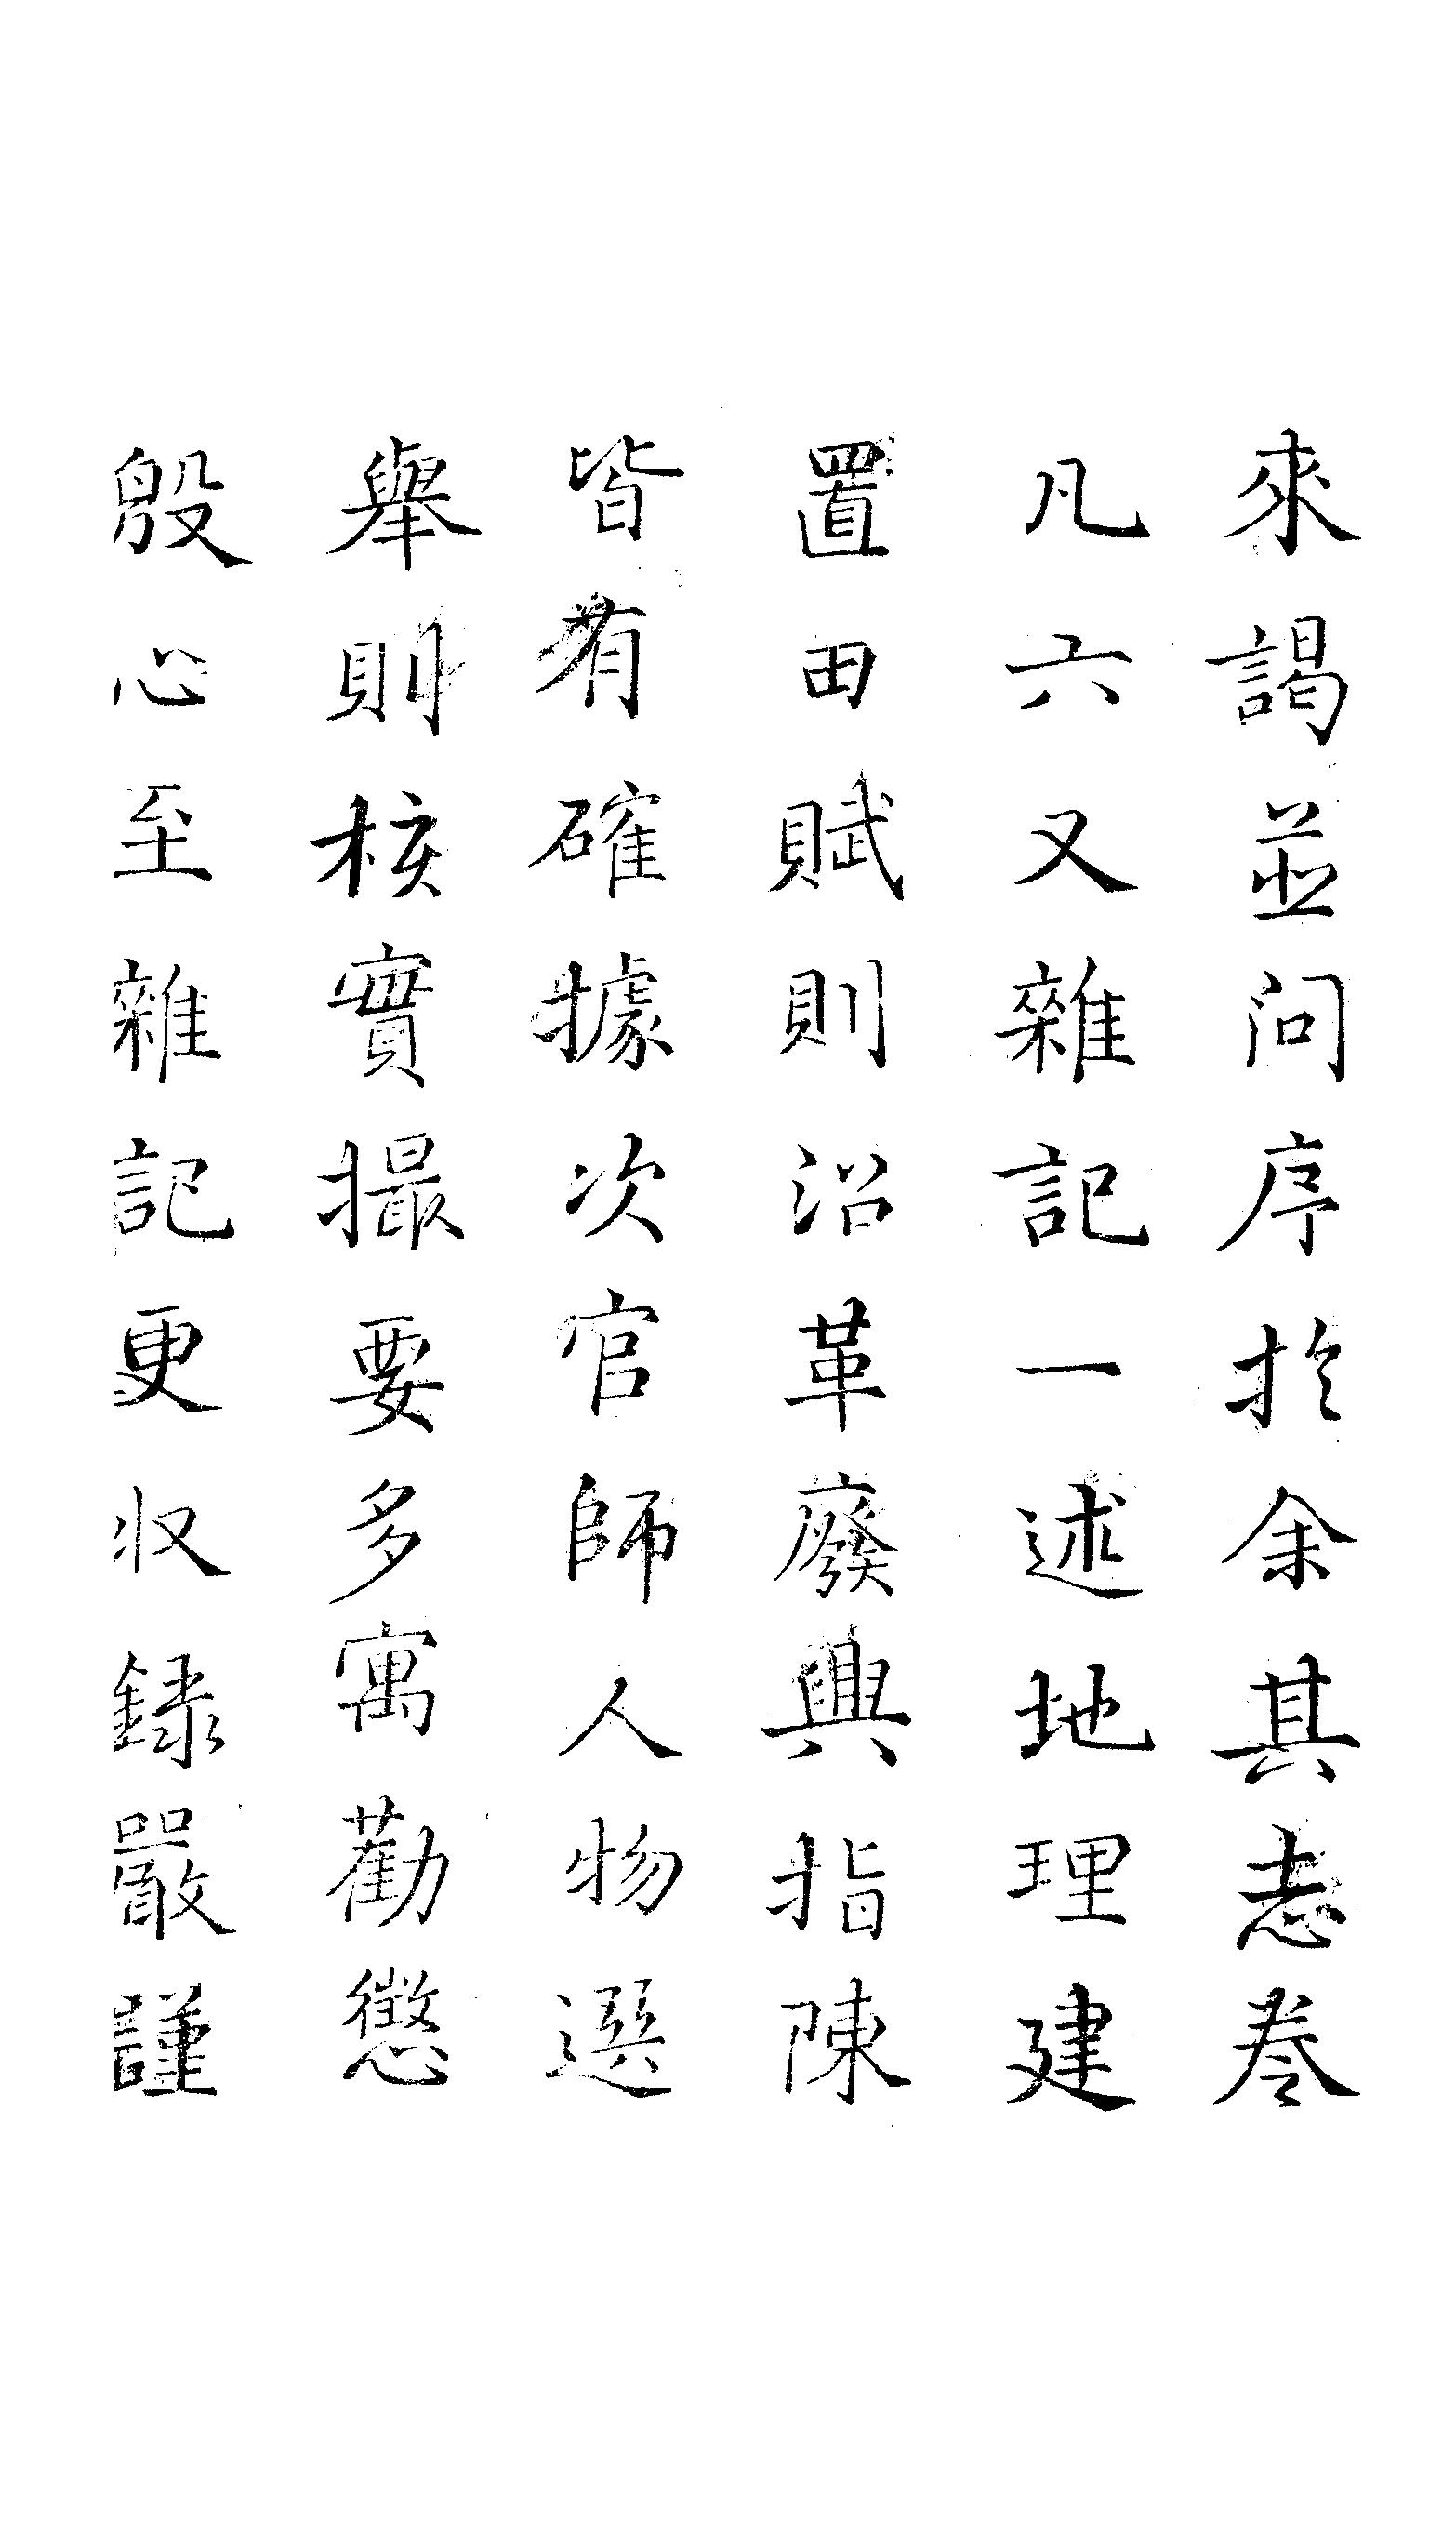 來謁並問序於余其志卷
凡六又雜記一述地理建
置田賦則沿革廢興指陳
皆有確據次官師人物選
舉則核實撮要多寓勸懲
殷心至雜記更收録嚴謹